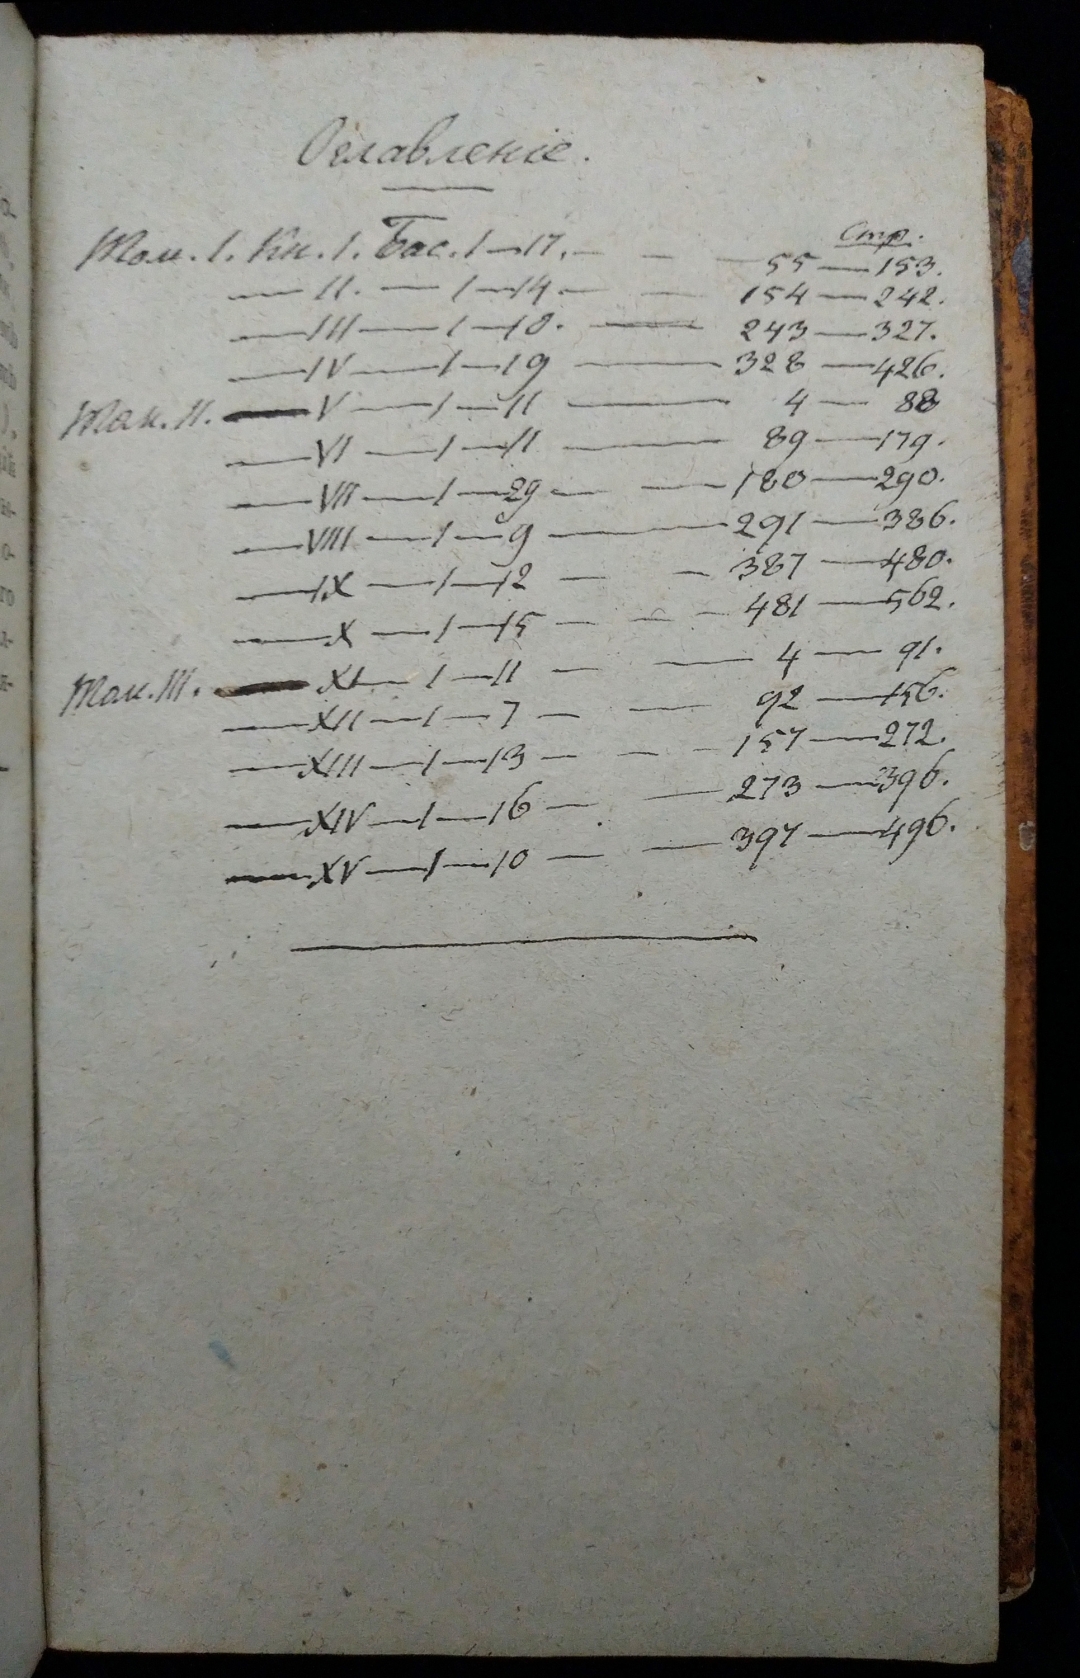 Оглавленіе.
Стр.
Том. I. Кн. I. Бас. 1 — 17. — — — 55 — 153.
— II. — 1 — 14 — — 154 — 242.
— III — 1 — 18. — 243 — 327.
— IV — 1 — 19 — 328 — 426.
Том. II. — V — 1 — 11 — 4 — 88
— VI — 1 — 11 — 89 — 179.
— VII — 1 — 29 — — 180 — 290.
— VIII — 1 — 9 — 291 — 386.
— IX — 1 — 12 — — 387 — 480.
— X — 1 — 15 — — — 481 — 562.
Том. III. — XI — 1 — 11 — — 4 — 91.
— XII — 1 — 7 — — 92 — 156.
— XIII — 1 — 13 — — — 157 — 272.
— XIV — 1 — 16 — — 273 — 396.
— XV — 1 — 10 — — 397 — 496.